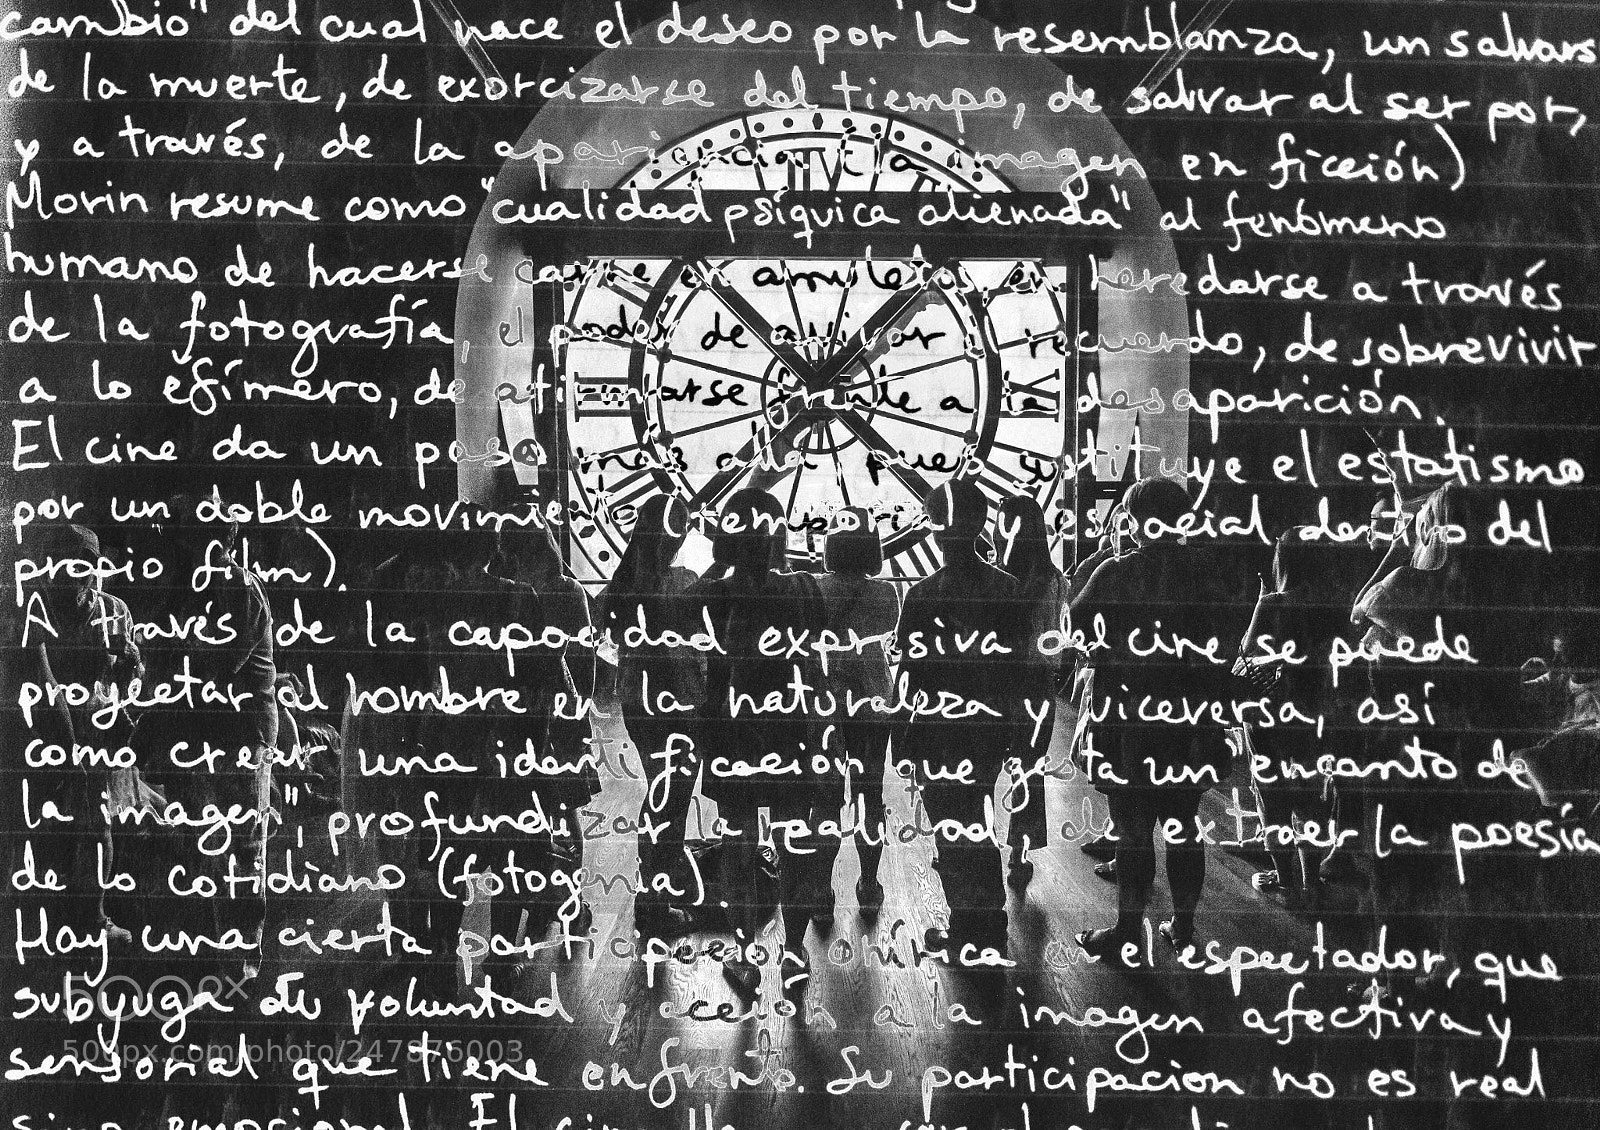 cambio" del cual nace el deseo por la resemblanza, un salvars
de la muerte, de exorcizarse del tiempo, de salvar al ser por,
y a través, de la apariencia (la imagen en ficción)
Morin resume como "cualidad psíquica alienada" al fenómeno
humano de hacerse carne en amuletos, en heredarse a través
de la fotografía, el poder de activar el recuerdo, de sobrevivir
a lo efímero, de afirmarse frente a la desaparición.
El cine da un paso más allá, pues sustituye el estatismo
por un doble movimiento (temporal y espacial dentro del
propio film).
A través de la capacidad expresiva del cine se puede
proyectar al hombre en la naturaleza y viceversa, así
como crear una identificación que gesta un "encanto de
la imagen", profundizar la realidad, de extraer la poesía
de lo cotidiano (fotogenia).
Hay una cierta participación onírica en el espectador, que
subyuga su voluntad y acción a la imagen afectiva y
500px
sensorial que tiene enfrente. Su participacion no es real
500px.com/photo/247876003
sino emocional. El cine
IV
II